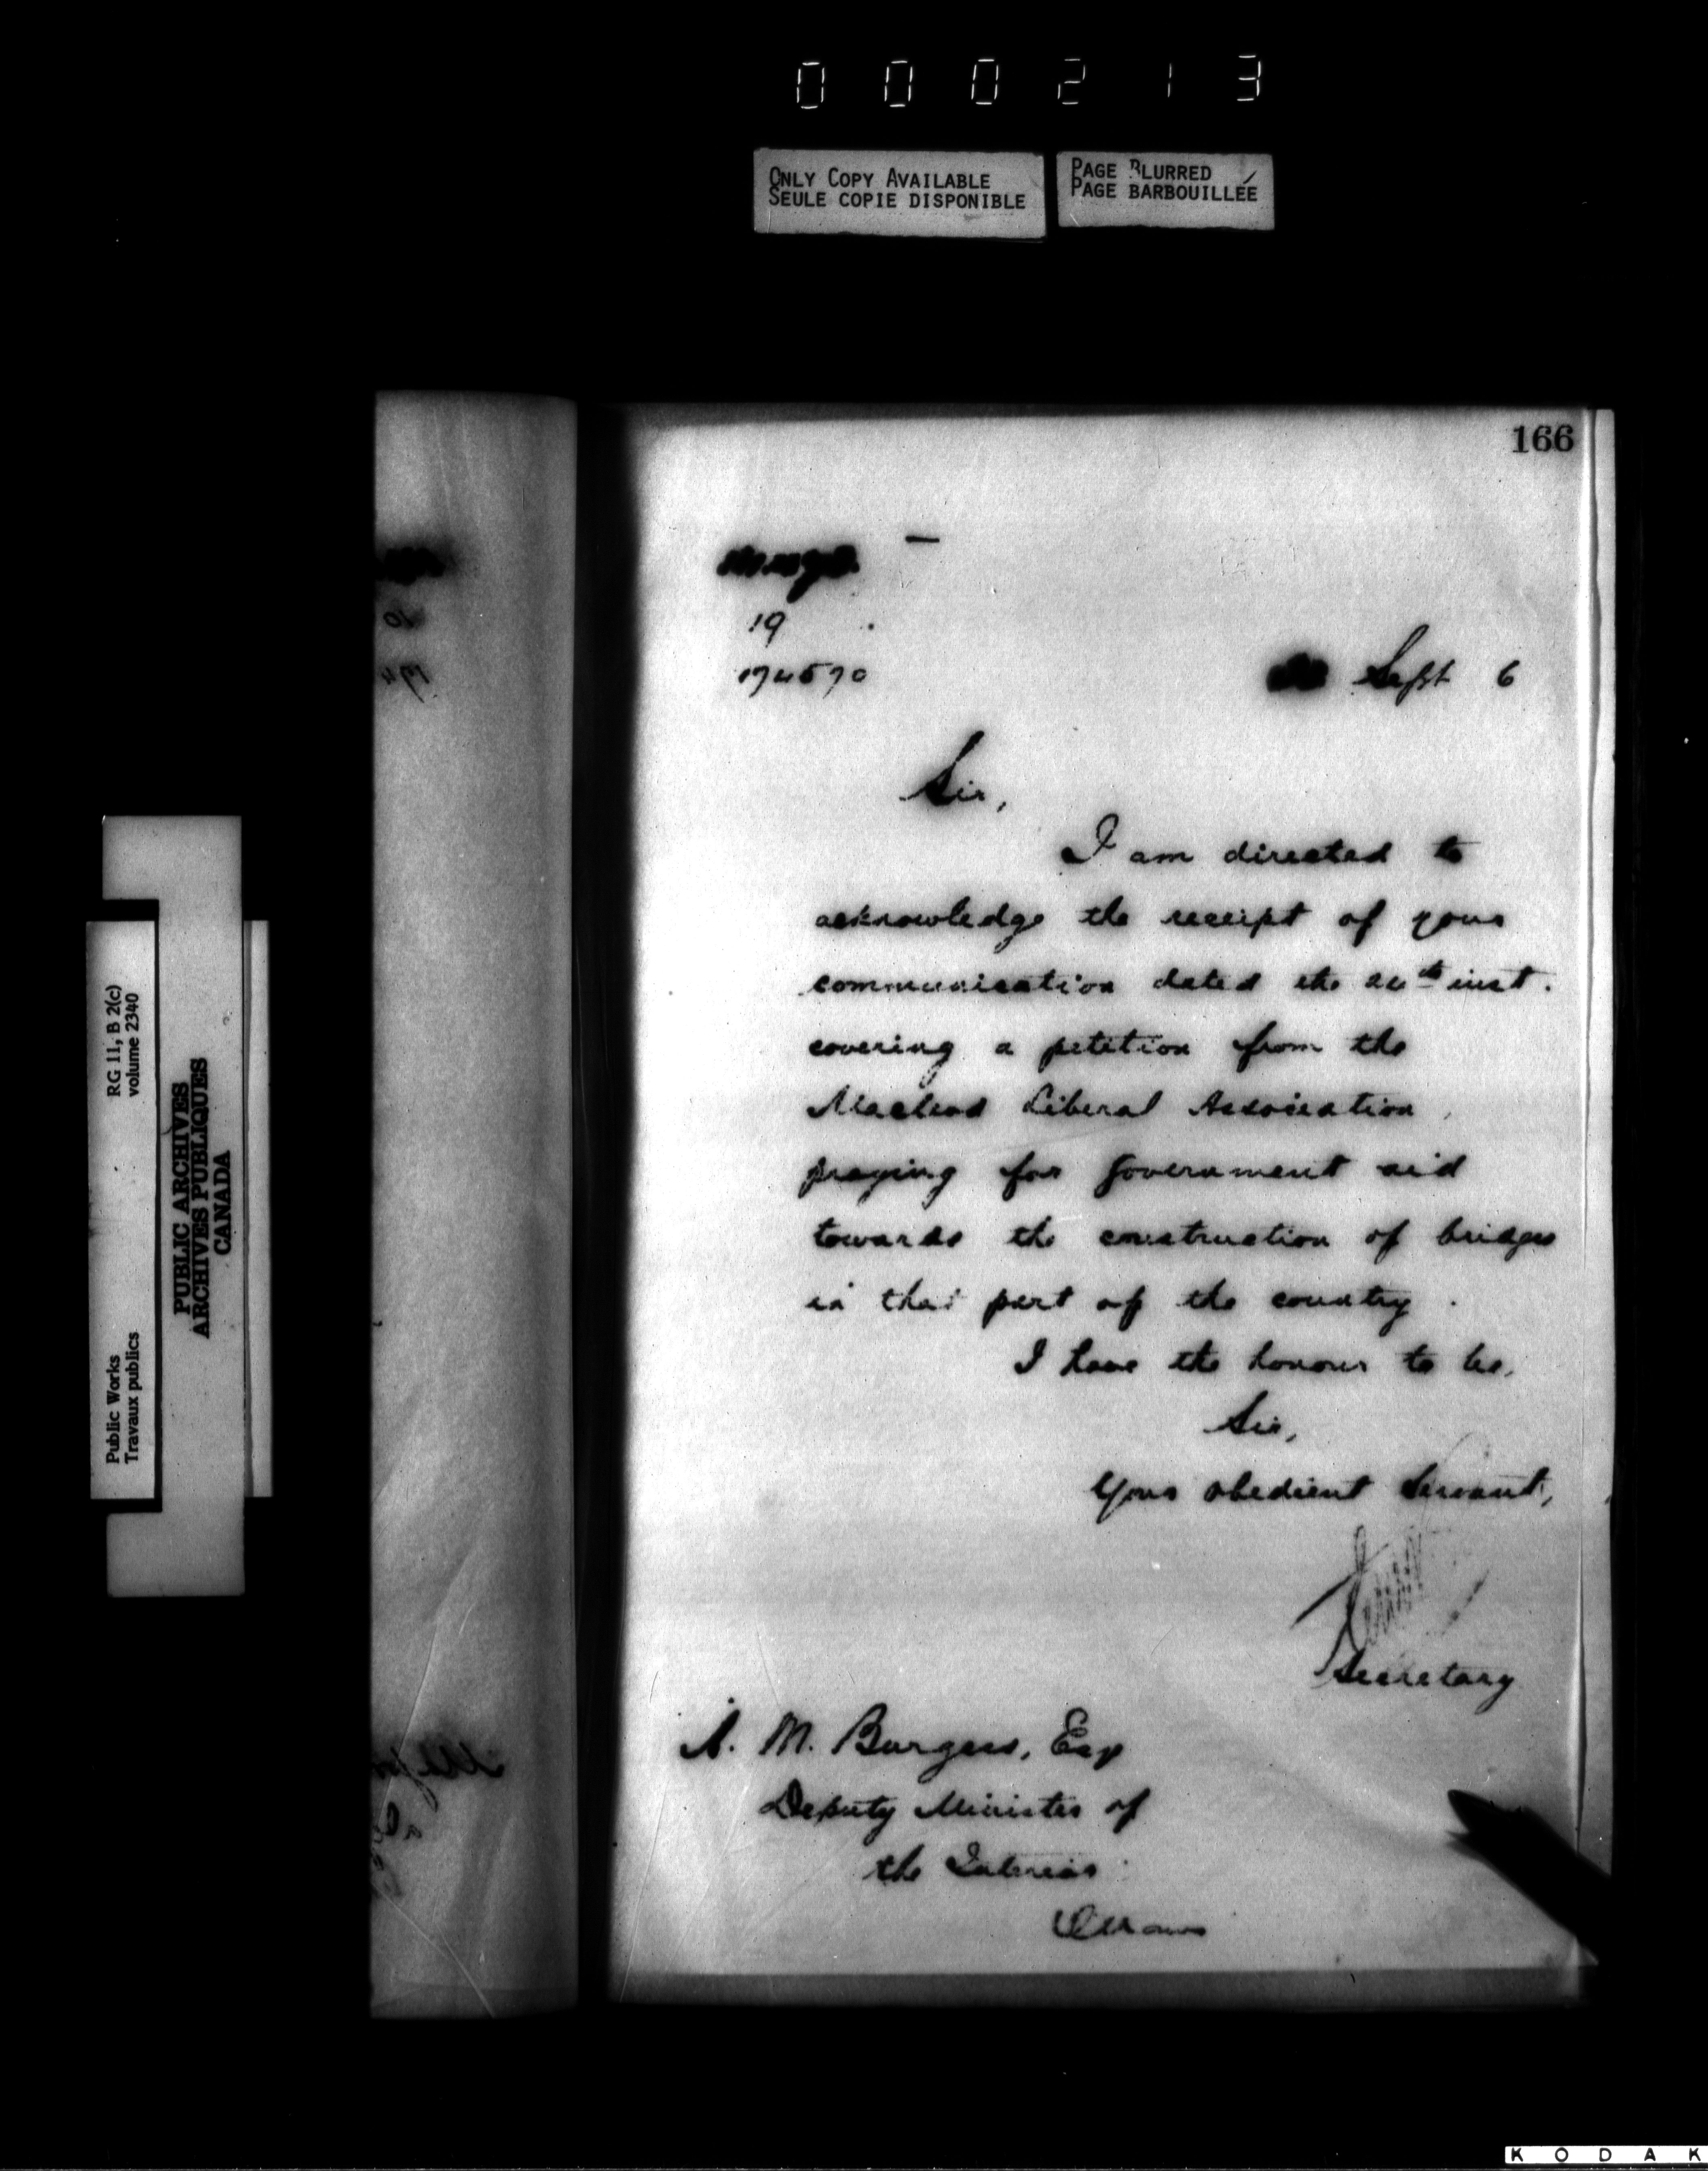 000213
ONLY COPY AVAILABLE
SEULE COPIE DISPONIBLE
PAGE BLURRED
PAGE BARBOUILLÉE
166
19
174570
Sept 6
Sir,
I am directed to
acknowledge the receipt of your
communication dated the inst.
covering a petition from the
Macleod Liberal Association
praying for Government aid
towards the construction of bridges
in that part of the country.
I have the honour to be,
Sir,
Your obedient Servant,
Secretary
A. M. Burgess, Esq
Deputy Minister of
the Interior
Ottawa
RG 11, B 2(c)
volume 2340
Public Works
Travaux publics
PUBLIC ARCHIVES
ARCHIVES PUBLIQUES
CANADA
KODAK